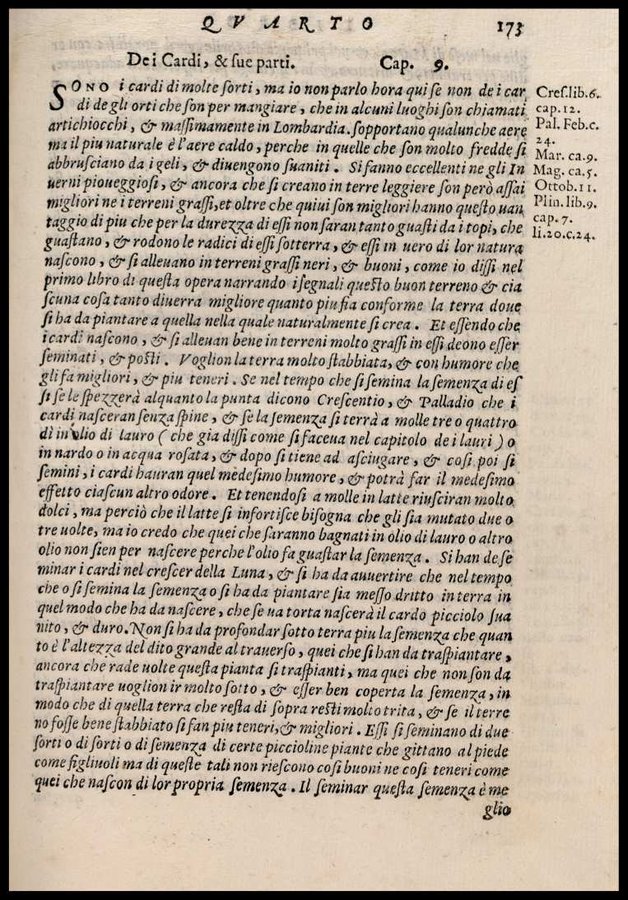 QVARTO 173
De i Cardi, & sue parti. Cap. 9.
SONO i cardi di molte sorti, ma io non parlo hora qui se non de i car
di de gli orti che son per mangiare, che in alcuni luoghi son chiamati
artichiocchi, & massimamente in Lombardia. sopportano qualunche aere
ma il piu naturale è l'aere caldo, perche in quelle che son molto fredde si
abbrusciano da i geli, & diuengono suaniti. Si fanno eccellenti ne gli In
uerni pioueggiosi, & ancora che si creano in terre leggiere son però assai
migliori ne i terreni grassi, et oltre che quiui son migliori hanno questo uan
taggio di piu che per la durezza di essi non saran tanto guasti da i topi, che
guastano, & rodono le radici di essi sotterra, & essi in uero di lor natura
nascono, & si alleuano in terreni grassi neri, & buoni, come io dissi nel
primo libro di questa opera narrando i segnali questo buon terreno & cia
scuna cosa tanto diuerra migliore quanto piu sia conforme la terra doue
si ha da piantare a quella nella quale naturalmente si crea. Et essendo che
i cardi nascono, & si alleuan bene in terreni molto grassi in essi deono esser
seminati, & posti. Voglion la terra molto stabbiata, & con humore che
gli fa migliori, & piu teneri. Se nel tempo che si semina la semenza di es
si se le spezzerà alquanto la punta dicono Crescentio, & Palladio che i
cardi nasceran senza spine, & se la semenza si terrà a molle tre o quattro
dì in olio di lauro (che gia dissi come si faceua nel capitolo de i lauri) o
in nardo o in acqua rosata, & dopo si tiene ad asciugare, & così poi si
semini, i cardi hauran quel medesimo humore, & potrà far il medesimo
effetto ciascun altro odore. Et tenendosi a molle in latte riusciran molto
dolci, ma perciò che il latte si infortisce bisogna che gli sia mutato due o
tre uolte, ma io credo che quei che saranno bagnati in olio di lauro o altro
olio non sien per nascere perche l'olio fa guastar la semenza. Si han de se
minar i cardi nel crescer della Luna, & si ha da auuertire che nel tempo
che o si semina la semenza o si ha da piantare sia messo dritto in terra in
quel modo che ha da nascere, che se ua torta nascerà il cardo picciolo sua
nito, & duro. Non si ha da profondar sotto terra piu la semenza che quan
to è l'altezza del dito grande al trauerso, quei che si han da traspiantare,
ancora che rade uolte questa pianta si traspianti, ma quei che non son da
traspiantare voglion ir molto sotto, & esser ben coperta la semenza, in
modo che di quella terra che resta di sopra resti molto trita, & se il terre
no fosse bene stabbiato si fan piu teneri, & migliori. Essi si seminano di due
sorti o di sorti o di semenza di certe piccioline piante che gittano al piede
come figliuoli ma di queste tali non riescono così buoni ne così teneri come
quei che nascon di lor propria semenza. Il seminar questa semenza è me
glio
Cres.lib.6.
cap.12.
Pal. Feb.c.
24.
Mar. ca.9.
Mag. ca.5.
Ottob.11.
Plin.lib.9.
cap. 7.
li.20.c.24.